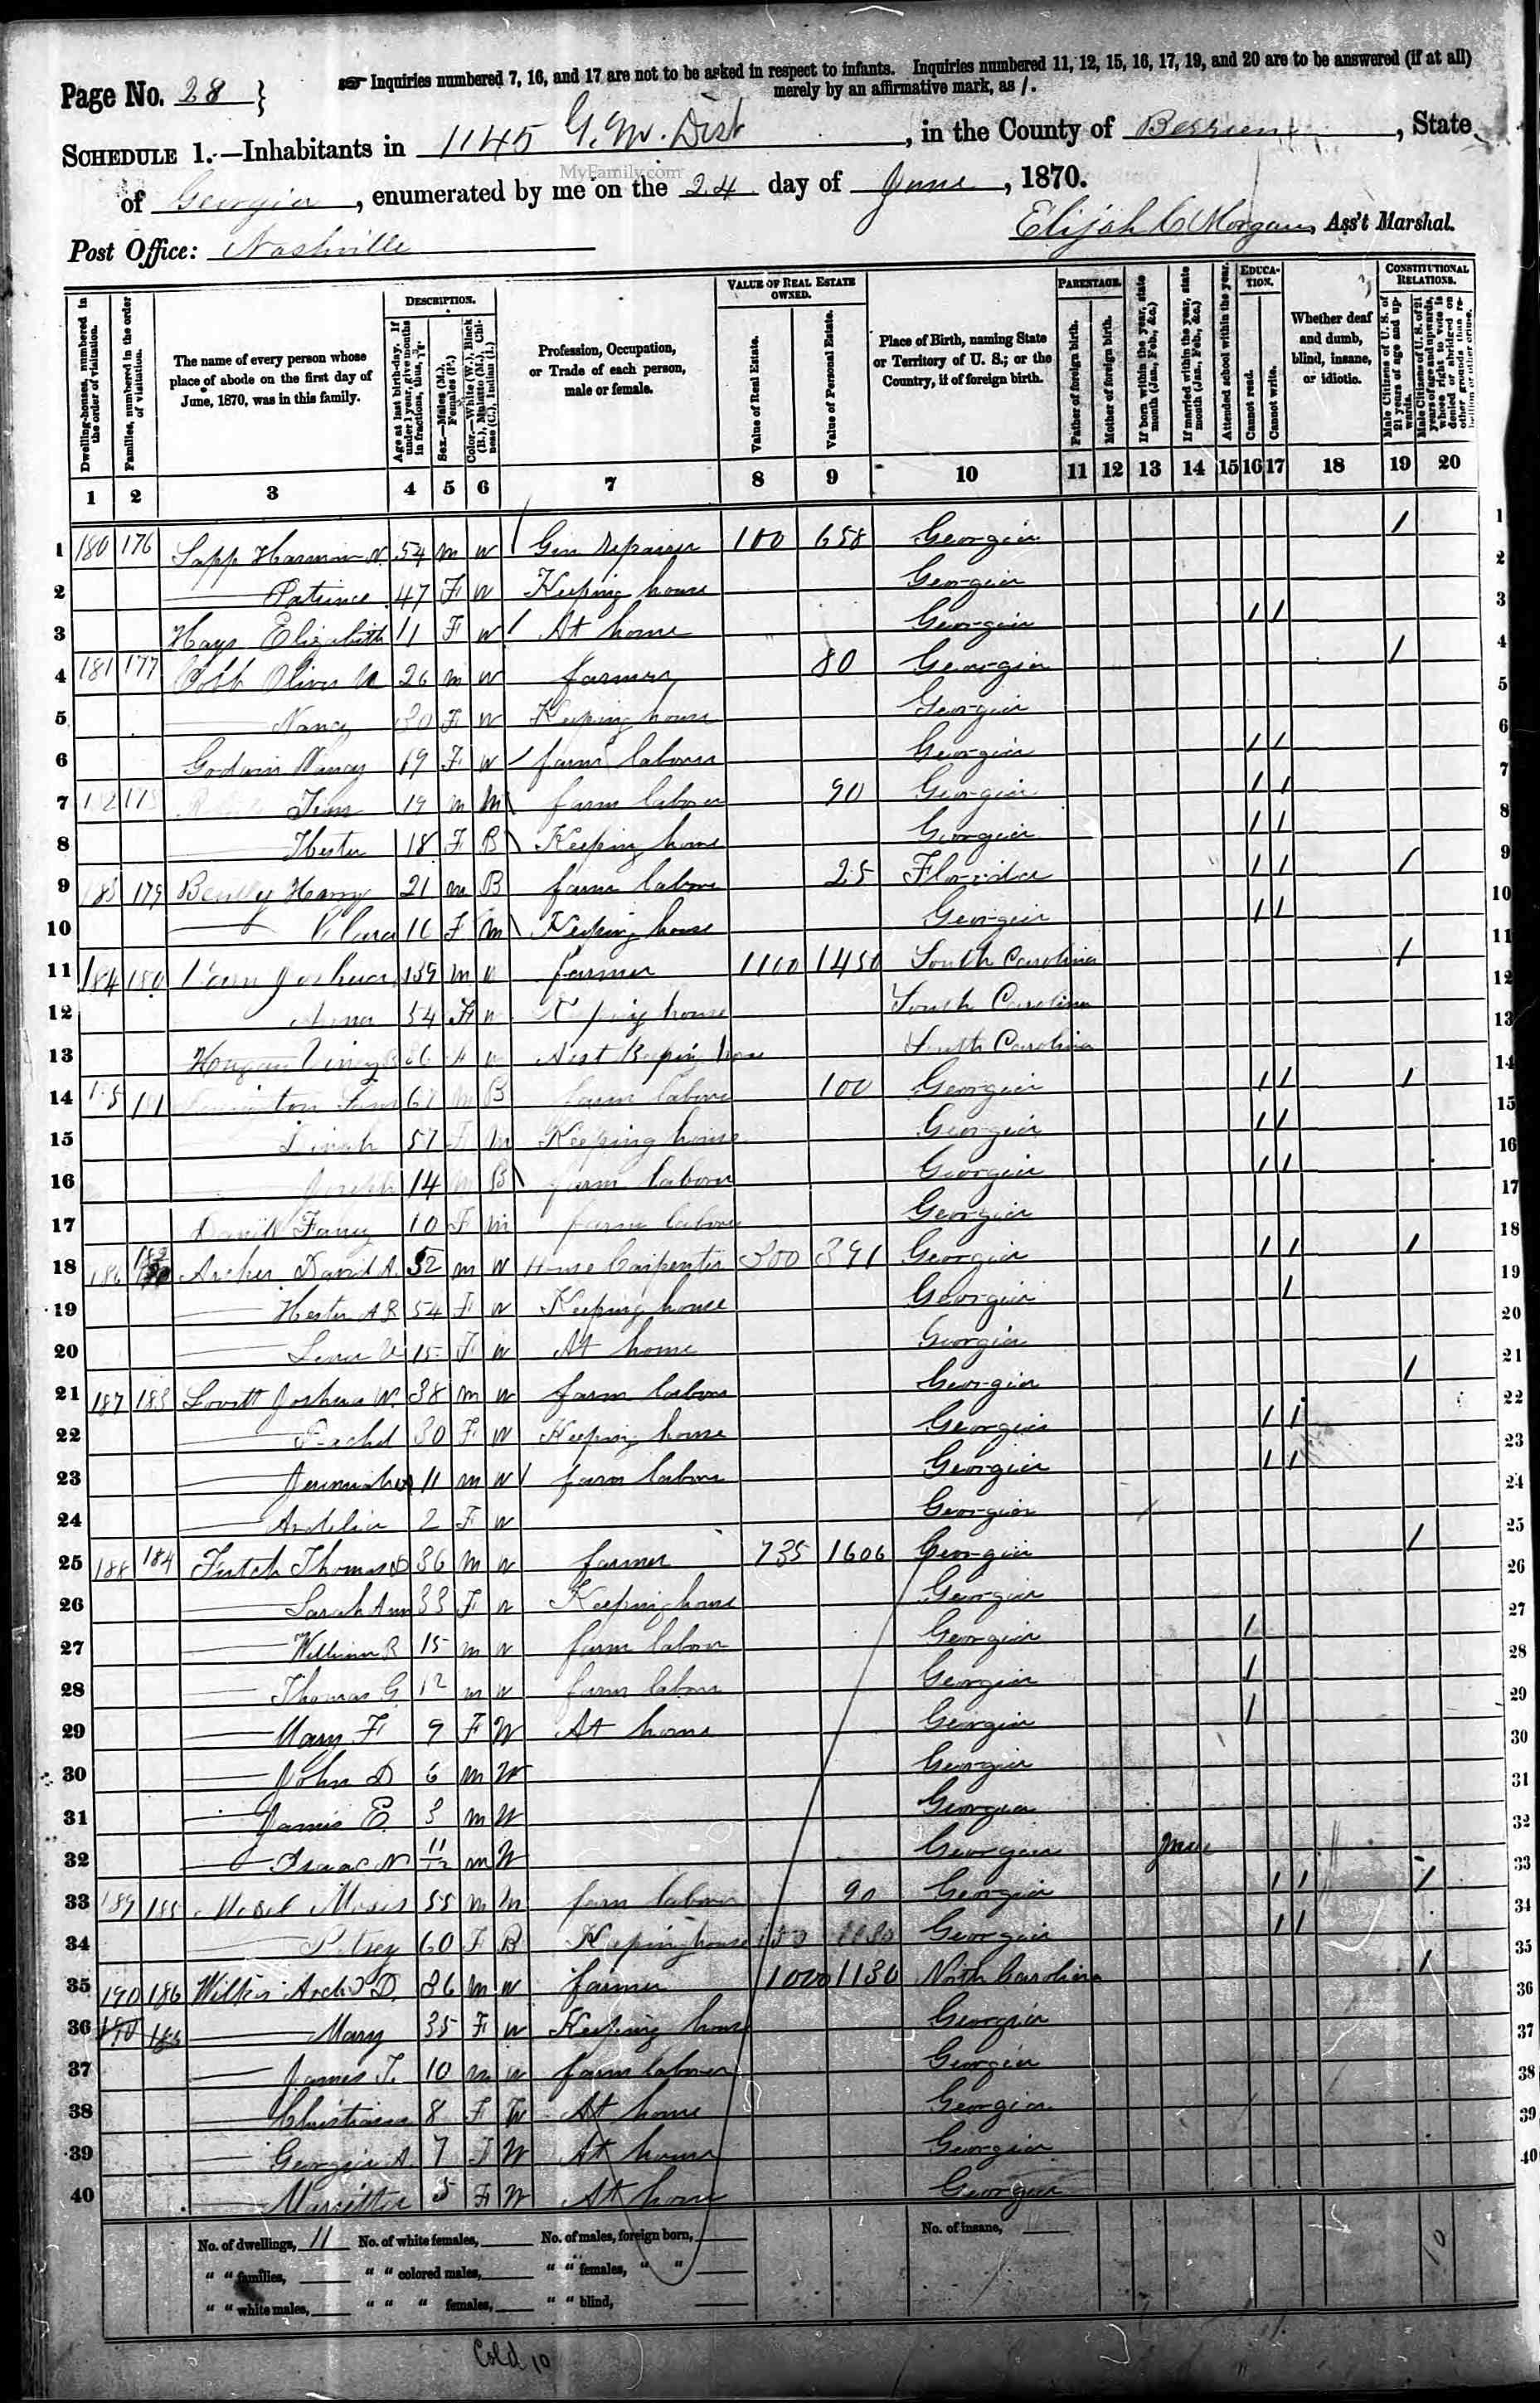 Page No. 28 }
☞ Inquiries numbered 7, 16, and 17 are not to be asked in respect to infants. Inquiries numbered 11, 12, 15, 16, 17, 19, and 20 are to be answered (if at all)
merely by an affirmative mark, as /.
SCHEDULE 1.—Inhabitants in 1145 G. M. Dist, in the County of Berrien, State
MyFamily.com
of Georgia, enumerated by me on the 24 day of June, 1870.
Elijah C Morgan, Ass't Marshal.
Post Office: Nashville
Dwelling-houses, numbered in the order of visitation.
Families, numbered in the order of visitation.
The name of every person whose place of abode on the first day of June, 1870, was in this family.
DESCRIPTION.
Age at last birth-day. If under 1 year, give months in fractions, thus,
Sex.—Males (M.), Females (F.)
Color.—White (W.), Black (B.), Mulatto (M.), Chinese (C.), Indian (I.)
Profession, Occupation, or Trade of each person, male or female.
VALUE OF REAL ESTATE OWNED.
Value of Real Estate.
Value of Personal Estate.
Place of Birth, naming State or Territory of U. S.; or the Country, if of foreign birth.
PARENTAGE.
Father of foreign birth.
Mother of foreign birth.
If born within the year, state month (Jan., Feb., &c.)
If married within the year, state month (Jan., Feb., &c.)
Attended school within the year.
EDUCATION.
Cannot read.
Cannot write.
Whether deaf and dumb, blind, insane, or idiotic.
CONSTITUTIONAL RELATIONS.
Male Citizens of U. S. of 21 years of age and upwards.
Male Citizens of U. S. of 21 years of age and upwards, whose right to vote is denied or abridged on other grounds than rebellion or other crime.
1 2 3 4 5 6 7 8 9 10 11 12 13 14 15 16 17 18 19 20
1 180 176 Sapp Harmon N. 54 m w Gin repairer 100 658 Georgia / 1
2 — Patience 47 F w Keeping house Georgia 2
3 Hays Elizabeth 11 F w At home Georgia / / 3
4 181 177 Cobb Oliver 26 m w farmer 80 Georgia / 4
5 — Nancy 30 F w Keeping house Georgia 5
6 Godwin Nancy 19 F w farm laborer Georgia / / 6
7 Jim 19 m M farm laborer 90 Georgia / / 7
8 — Hester 18 F B Keeping house Georgia / / 8
9 183 179 Harry 21 m B farm labor 25 Florida / / / 9
10 — Clara 16 F M Keeping house Georgia / / 10
11 184 180 Joshua 39 m w farmer 1100 1450 South Carolina / 11
12 54 F w Keeping house South Carolina 12
13 South Carolina 13
14 181 67 m B farm labor 100 Georgia / / / 14
15 Dinah 57 F M Keeping house Georgia / / 15
16 Joseph 14 m B farm labor Georgia / / 16
17 10 F M farm labor Georgia 17
18 186 182 Archer David A. 52 m w House Carpenter 300 391 Georgia / / / 18
19 — Hester A R 54 F w Keeping house Georgia / 19
20 — 15 F w At home Georgia 20
21 187 183 Lovett Joshua W. 38 m w farm labor Georgia / 21
22 — Rachel 30 F w Keeping house Georgia / / 22
23 — 11 m w farm labor Georgia / / 23
24 — Ardelia 2 F w Georgia 24
25 188 184 Futch Thomas D 36 m w farmer 735 1606 Georgia / 25
26 — Sarah Ann 33 F w Keeping house Georgia 26
27 — William R 15 m w farm labor Georgia / 27
28 — Thomas G. 12 m w farm labor Georgia / 28
29 — Mary F 9 F W At home Georgia / 29
30 — John D 6 m W Georgia 30
31 — James E. 3 m W Georgia 31
32 — Isaac N 11/12 m W Georgia June 32
33 189 185 Moses 55 m M farm labor 90 Georgia / / / 33
34 — Patsey 60 F B Keeping house Georgia / / 34
35 190 186 Arch'd D. 36 m w farmer 1000 1130 North Carolina / 35
36 — Mary 35 F w Keeping house Georgia 36
37 — James T. 10 m w farm labor Georgia 37
38 — Christiana 8 F W At home Georgia 38
39 — Georgia A. 7 F W At home Georgia 39
40 — 5 F W At home Georgia 40
No. of dwellings, 11 No. of white females, No. of males, foreign born, No. of insane,
" " families, " " colored males, " " females, " "
" " white males, " " " females, " " blind,
10
Cold 10